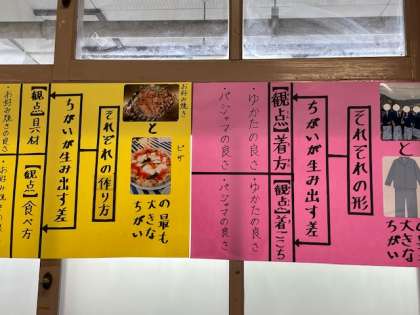 と
の最も
大きな
ちがい
それぞれの形
ちがいが生み出す差
【観点】着方
・ゆかたの良さ
・パジャマの良さ
【観点】着ごこち
・ゆかたの良さ
・パジャマの良さ
お好み焼き
と
ピザ
の最も
大きな
ちがい
それぞれの作り方
ちがいが生み出す差
【観点】具材
・お好み焼きの良さ
【観点】食べ方
・お好み焼きの良さ